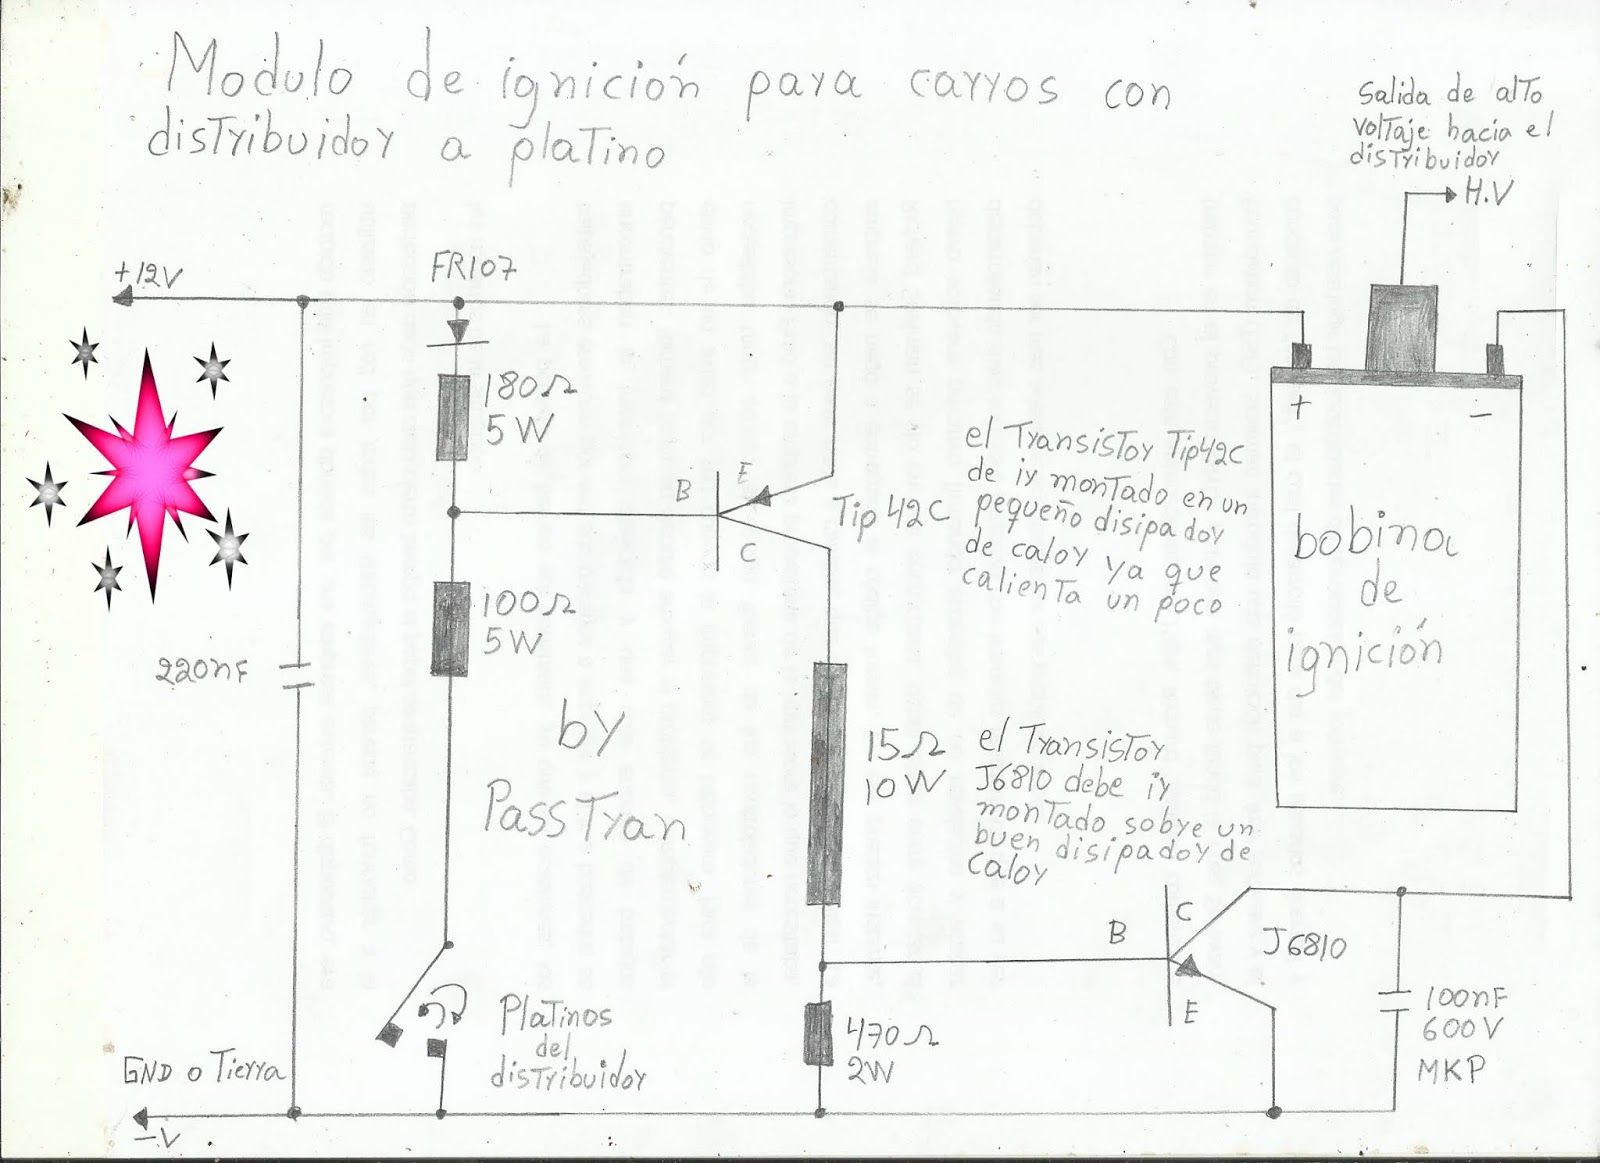 Modulo de ignición para carros con
distribuidor a platino
Salida de alto
voltaje hacia el
distribuidor
H.V
+12V
FR107
180Ω
5W
B
E
C
Tip 42C
el Transistor Tip42C
de ir montado en un
pequeño disipador
de calor ya que
calienta un poco
+
-
bobina
de
ignición
100Ω
5W
220nF
by
PassTran
15Ω
10W
el Transistor
J6810 debe ir
montado sobre un
buen disipador de
calor
B
C
E
J6810
Platinos
del
distribuidor
470Ω
2W
100nF
600V
MKP
GND o Tierra
-V